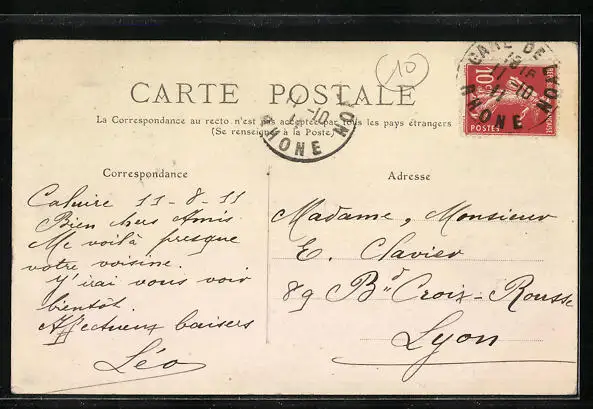 10
CARTE POSTALE
La Correspondance au recto n'est pas acceptée par tous les pays étrangers
(Se renseigner à la Poste)
GARE DE LYON
RHONE
10c
POSTES
RHONE
Correspondance
Adresse
Caluire 11-8-11
Bien chers Amis.
Me voilà presque
votre voisine.
J'irai vous voir
bientôt.
Affectueux baisers
Léo
Madame, Monsieur
E. Clavier
89 Bd Croix-Rousse
Lyon